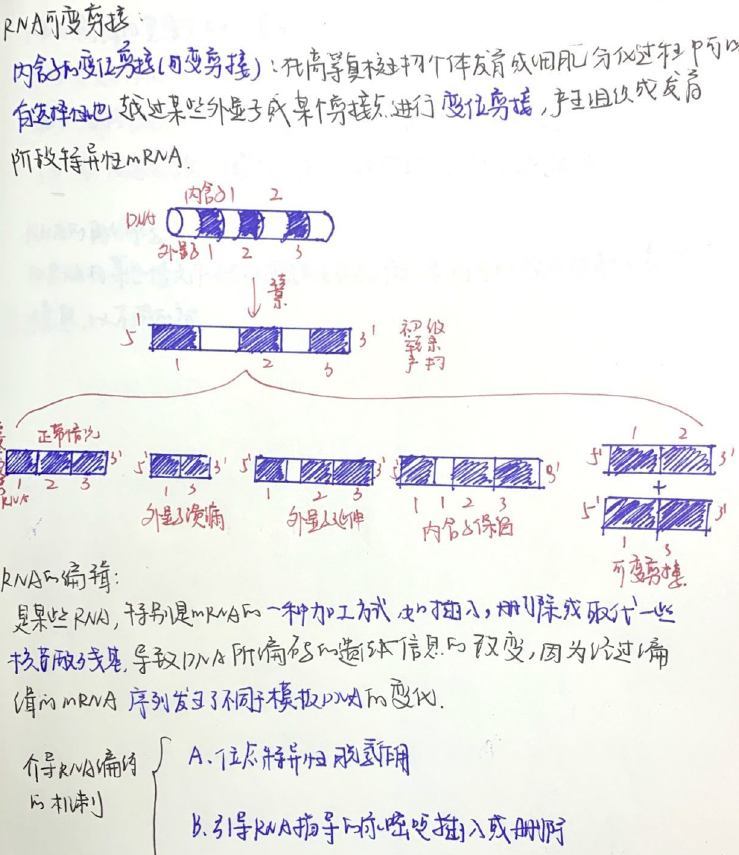 RNA可变剪接:
内含子的变位剪接(可变剪接):在高等真核生物个体发育或细胞分化过程中可以
有选择性地 越过某些外显子或某个剪接点进行变位剪接,产生组织或发育
阶段特异性mRNA.
内含子1 2
DNA
外显子1 2 3
转录
5' 3' 初级转录产物
1 2 3
正常情况
3' 5' 3' 5' 3' 5' 3'
1 2 3
RNA
1 3
外显子遗漏
1 2 3
外显子延伸
1 1 2 3
内含子保留
1 2
5' 3'
+
5' 3'
1 3
可变剪接
RNA的编辑:
是某些RNA,特别是mRNA的一种加工方式,如插入,删除或取代一些
核苷酸残基,导致DNA所编码的遗传信息的改变,因为经过编
辑的mRNA 序列发生了不同于模板DNA的变化.
介导RNA编辑
的机制
A.位点特异性脱氨作用
B.引导RNA指导的尿嘧啶插入或删除